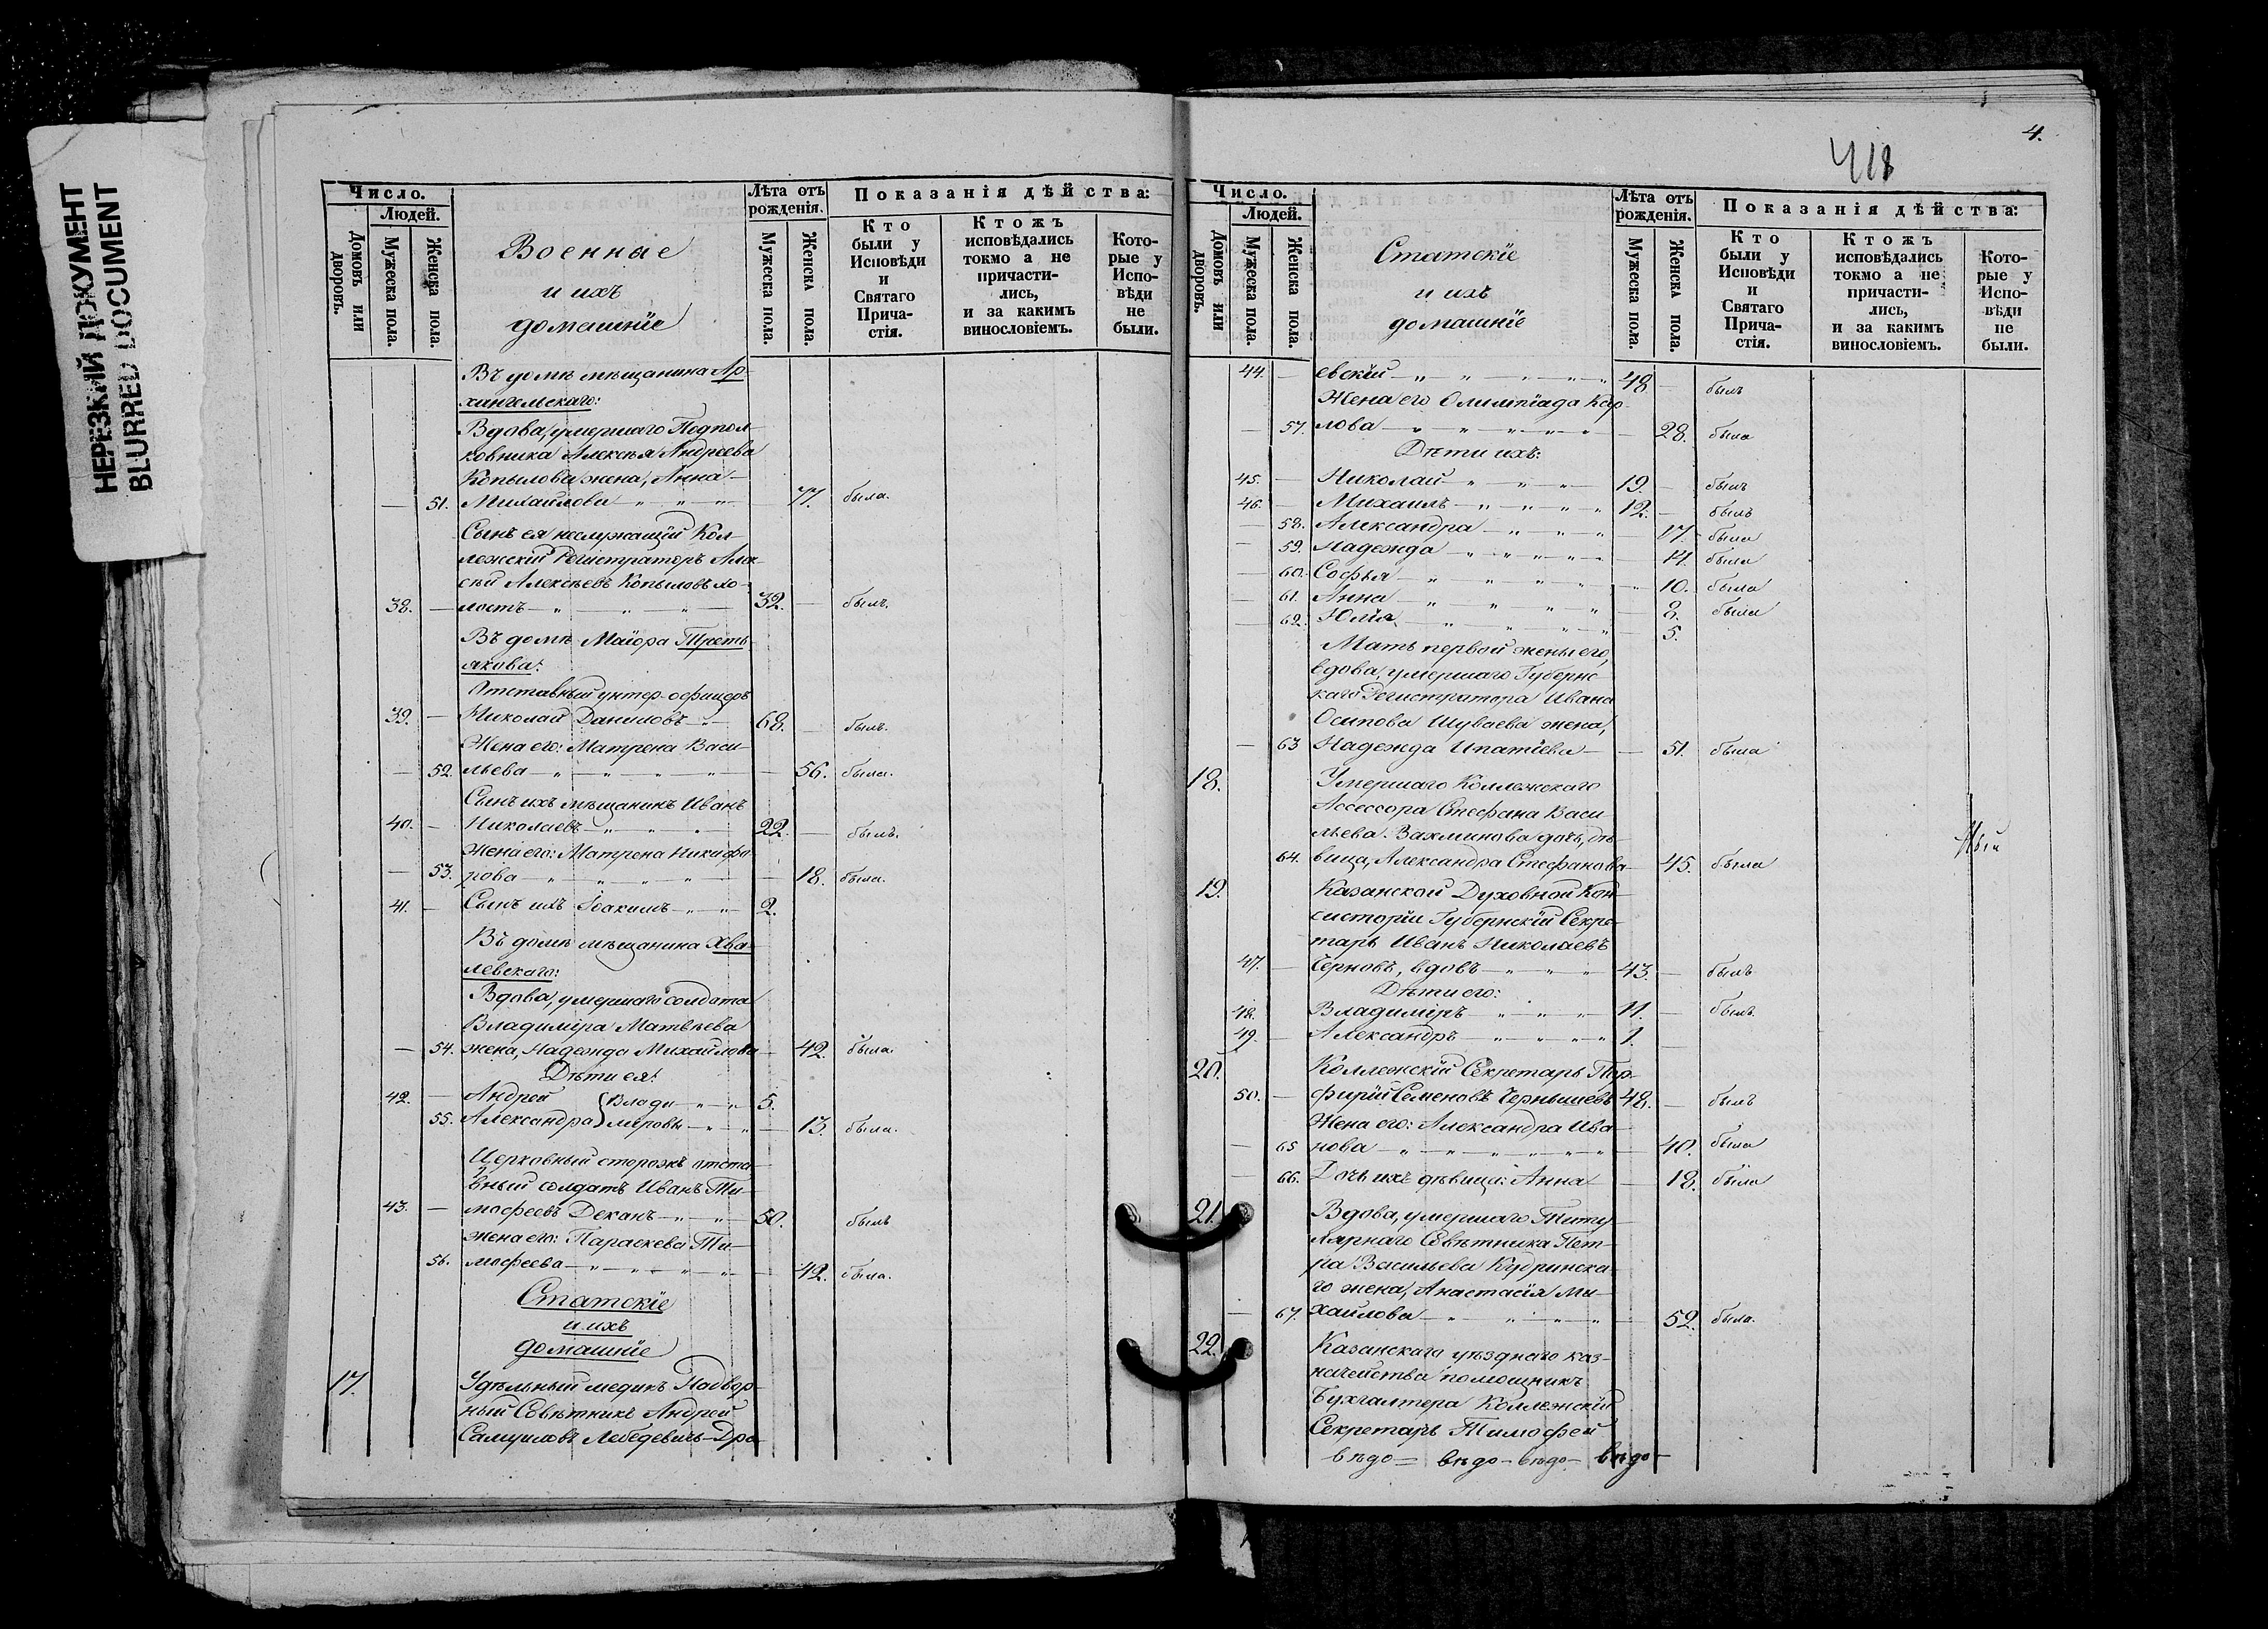 НЕРЕЗКИЙ ДОКУМЕНТ
BLURRED DOCUMENT
Число.
Людей.
Домовъ или дворовъ.
Мужеска пола.
Женска пола.
Военные
и ихъ
домашніе
Лѣта отъ рожденія.
Мужеска пола.
Женска пола.
Показанія дѣйства:
Кто были у Исповѣди и Святаго Причастія.
Ктожъ исповѣдались токмо а не причастились, и за какимъ винословіемъ.
Которые у Исповѣди не были.
Въ домѣ мѣщанина Ар-
хангельскаго:
Вдова, умершаго Подпол-
ковника Алексѣя Андреева
Копылова жена, Анна
— 51. Михайлова — 77. была.
Сынъ ея неслужащій Кол-
лежскій Регистраторъ Алек-
сѣй Алексѣевъ Копыловъ хо-
38. — лостъ — 32. — былъ.
Въ домѣ Маіора Треть-
якова:
Отставный унтер-офицеръ
39. — Николай Даниловъ — 68. — былъ.
Жена его: Матрена Васи-
— 52. льева — 56. была.
Сынъ ихъ мѣщанинъ Иванъ
40. — Николаевъ — 22. — былъ.
Жена его: Матрена Никифо-
— 53. рова — 18. была.
41. — Сынъ ихъ Іоакимъ — 2.
Въ домѣ мѣщанина Хва-
левскаго:
Вдова, умершаго солдата
Владиміра Матвѣева
— 54. жена, Надежда Михайлова — 42. была.
Дѣти ея:
42. — Андрей } Влади- — 5.
55. Александра } міровы — 13. была.
Церковный сторожъ отста-
вный солдатъ Иванъ Ти-
43. — мофеевъ Деканъ — 50. былъ
Жена его: Параскева Ти-
56. мофеева — 42. была.
Статскіе
и ихъ
домашніе
17. Удѣльный медикъ Надвор-
ный Совѣтникъ Андрей
Самуиловъ Лебедевичъ-Дра-
4.
418
Число.
Людей.
Домовъ или дворовъ.
Мужеска пола.
Женска пола.
Статскіе
и ихъ
домашніе
Лѣта отъ рожденія.
Мужеска пола.
Женска пола.
Показанія дѣйства:
Кто были у Исповѣди и Святаго Причастія.
Ктожъ исповѣдались токмо а не причастились, и за какимъ винословіемъ.
Которые у Исповѣди не были.
44. — евскій — 48 — былъ
Жена его Олимпіада Кар-
— 57. лова — 28. была
Дѣти ихъ:
45. — Николай — 19. — былъ
46. — Михаилъ — 12. — былъ
— 58. Александра — 17. была
— 59. Надежда — 14. была
— 60. Софья — 10. была
— 61. Анна — 8. была
— 62. Юлія — 5.
Мать первой жены его,
вдова, умершаго Губернс-
каго Регистратора Ивана
Осипова Шуваева жена,
— 63 Надежда Ипатіева — 51. была
18. Умершаго Коллежскаго
Ассессора Стефана Васи-
льева Вахминова дочь, дѣ-
64. вица, Александра Стефанова — 45. была
19. Казанской Духовной Кон-
систоріи Губернскій Секре-
тарь Иванъ Николаевъ
47. — Черновъ, вдовъ — 43. — былъ
Дѣти его:
48. Владиміръ — 11. — былъ
49. — Александръ — 1. —
20. Коллежскій Секретарь Пор-
50. — фирій Семеновъ Чернышевъ 48. — былъ
Жена его: Александра Ива-
— 65 нова — 40. была
— 66. Дочь ихъ дѣвица: Анна — 18. была
21. Вдова, умершаго Титу-
лярнаго Совѣтника Пет-
ра Васильева Кудринска-
го жена, Анастасія Ми-
— 67. хайлова — 52. была.
22. Казанскаго уѣзднаго каз-
начейства помощникъ
Бухгалтера Коллежскій
Секретарь Тимофей
вѣдо — вѣдо — вѣдо — вѣдо —